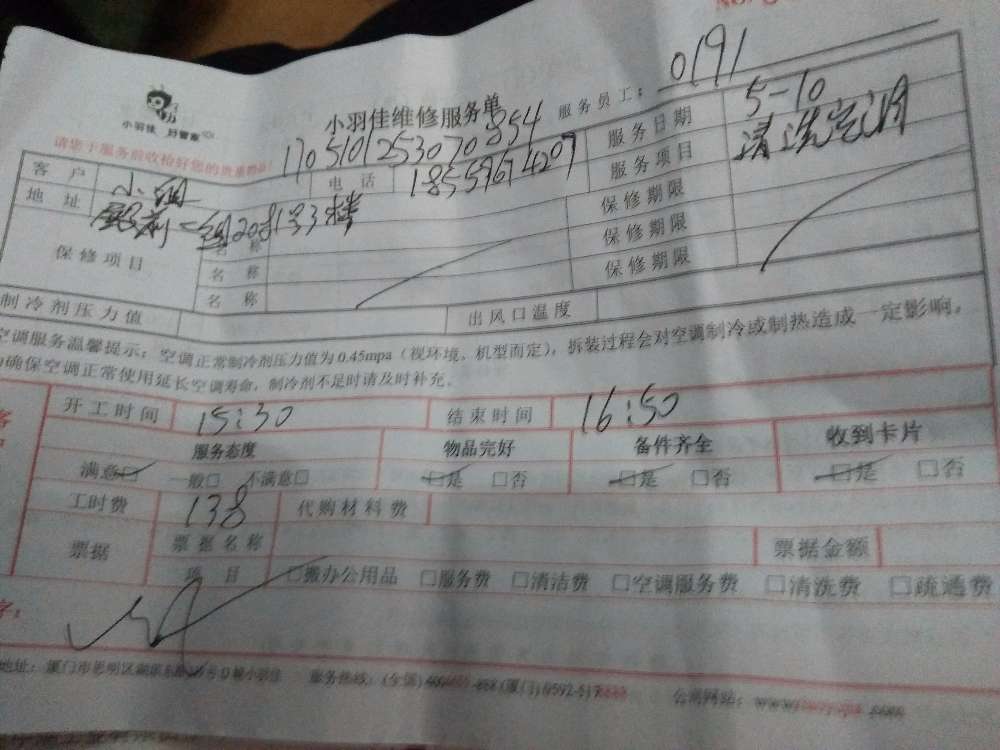 小羽佳 好管家
小羽佳维修服务单
服务员工: 0191
请您于服务前收检好您的贵重物品
1705101253070854
客户 小
电话 18559674207
服务日期 5-10
地址 殿前一组2081号3楼
服务项目 清洗空调
保修项目
名称
保修期限
名称
保修期限
名称
保修期限
制冷剂压力值
出风口温度
空调服务温馨提示: 空调正常制冷剂压力值为0.45mpa (视环境、机型而定), 拆装过程会对空调制冷或制热造成一定影响。
为确保空调正常使用延长空调寿命, 制冷剂不足时请及时补充。
开工时间 15:30 结束时间 16:50
服务态度 物品完好 备件齐全 收到卡片
满意□ 一般□ 不满意□ □是 □否 □是 □否 □是 □否
工时费 138 代购材料费
票据 票据名称 票据金额
项目 □搬办公用品 □服务费 □清洁费 □空调服务费 □清洗费 □疏通费
字:
地址: 厦门市思明区 小羽佳 服务热线: (全国) 400 (厦门) 0592-517 公司网站: www. .com